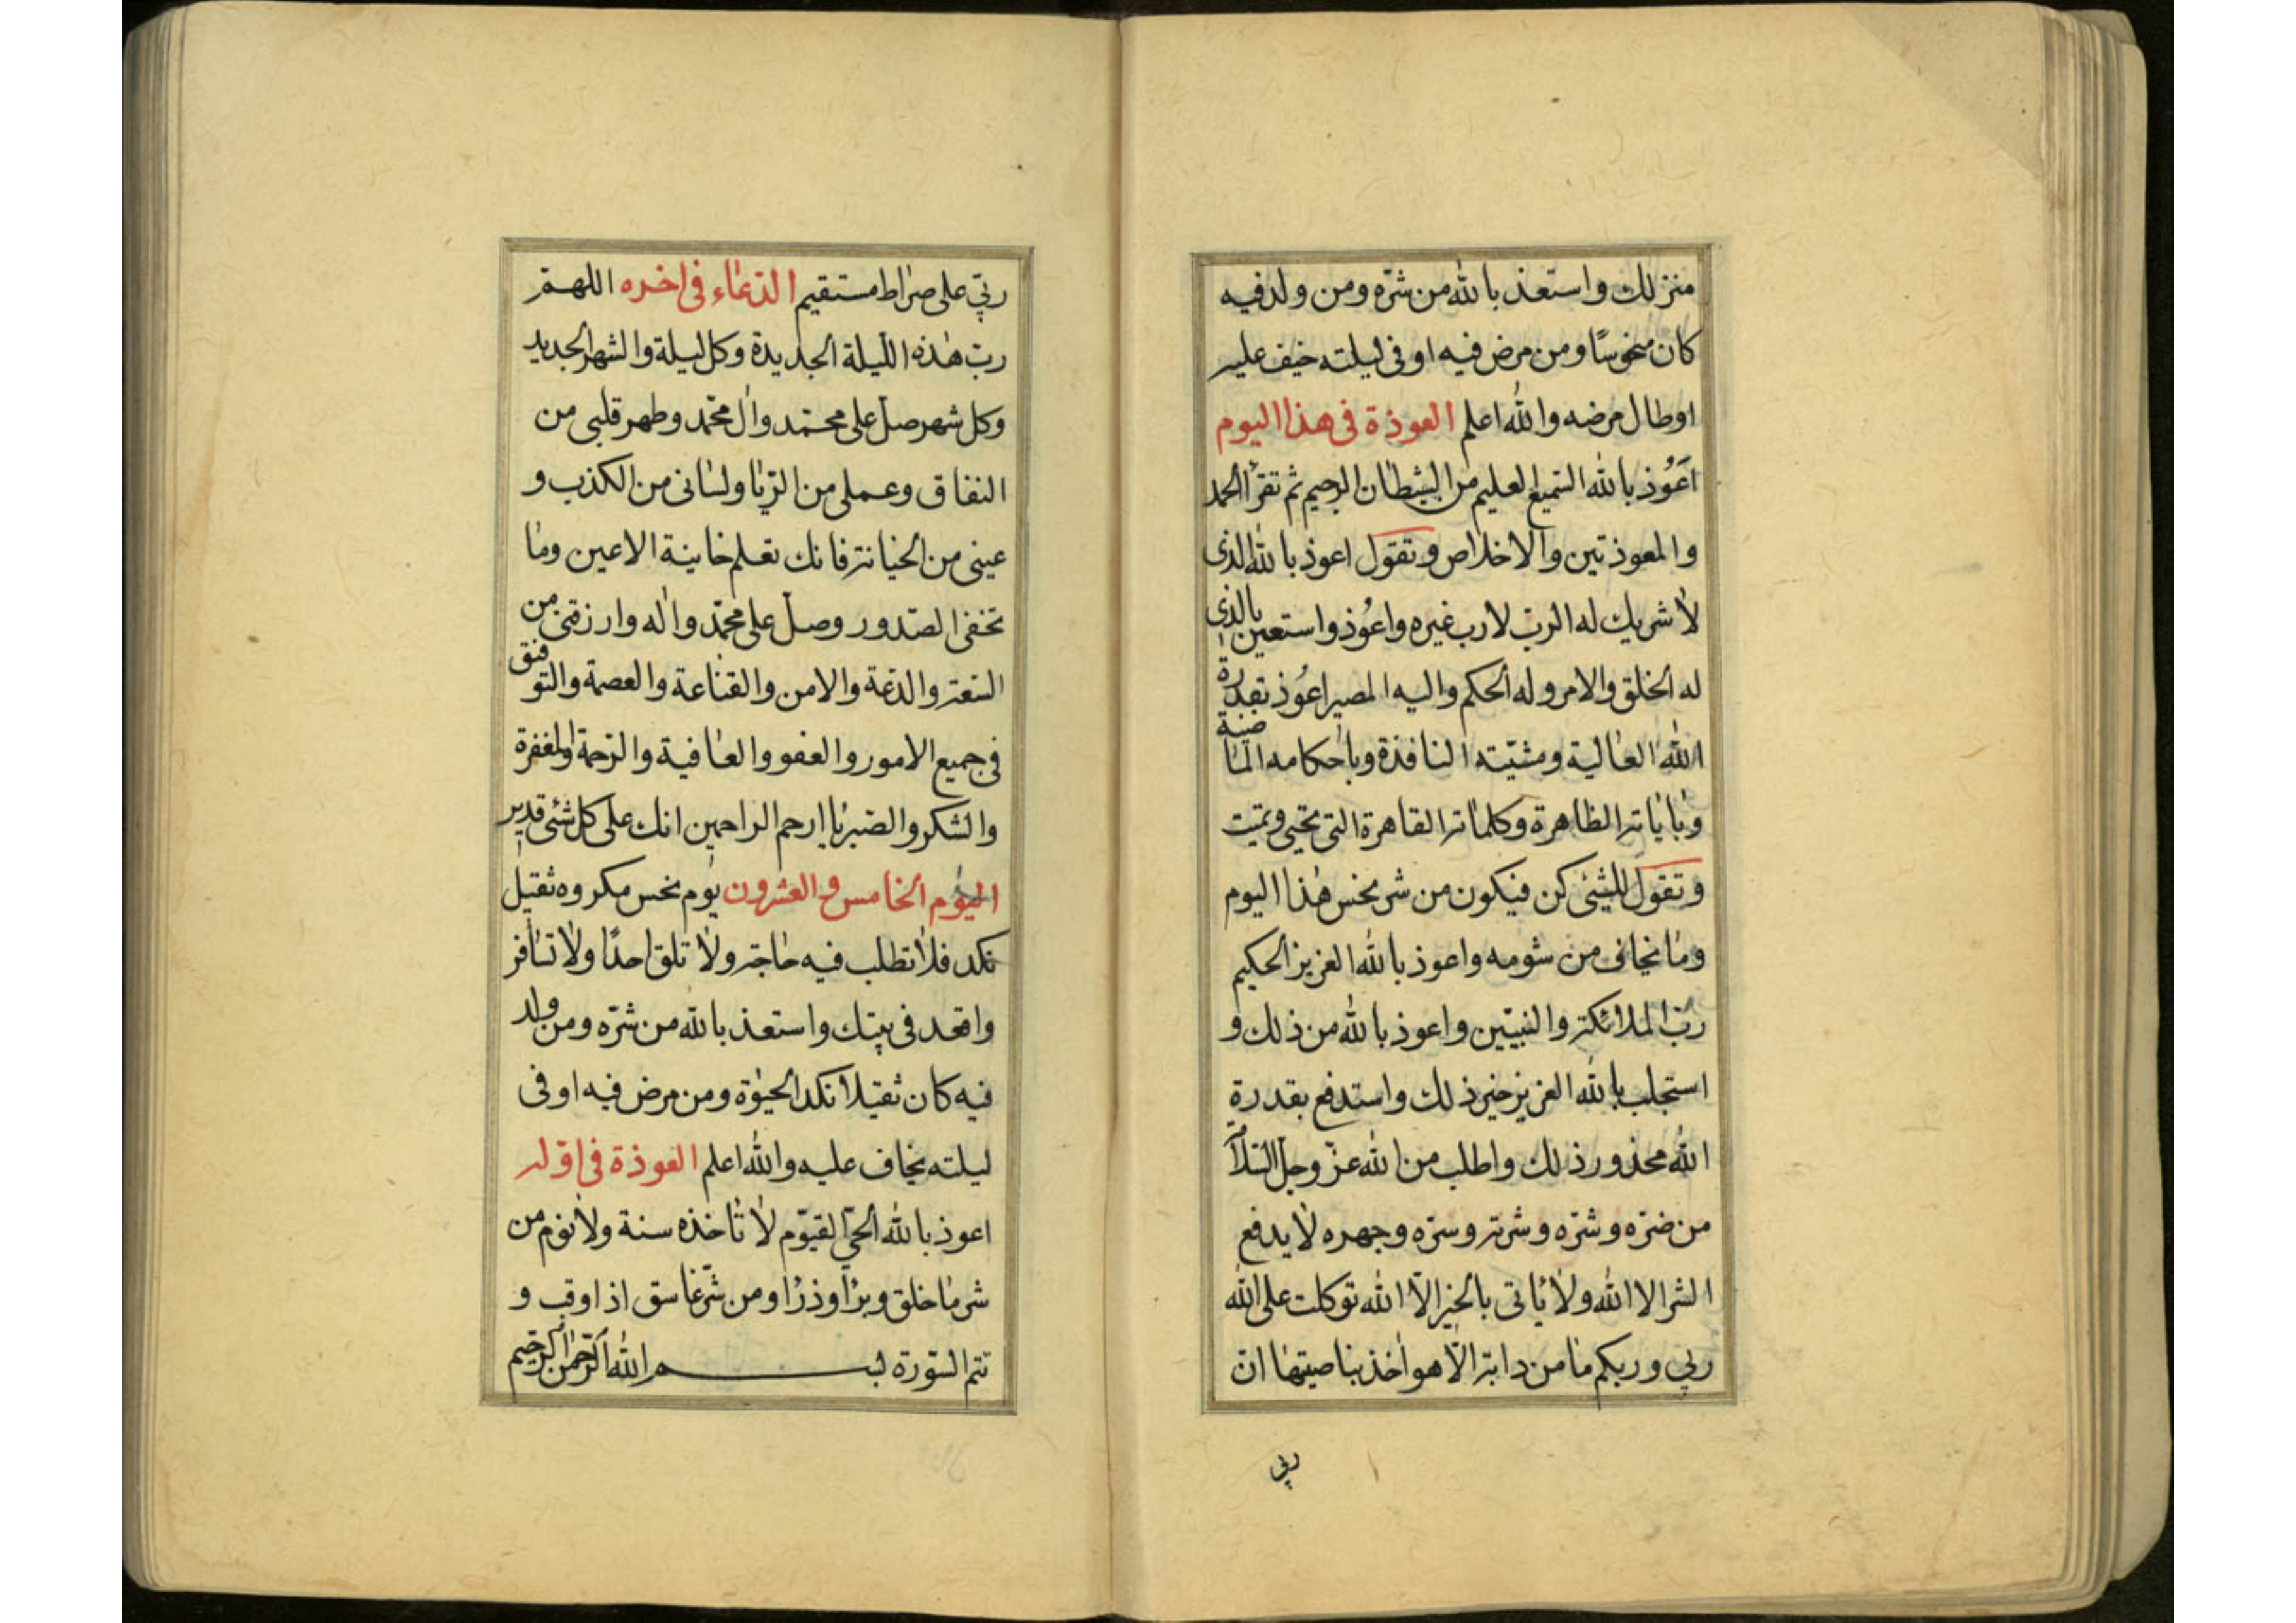 منزلك واستعذ بالله من شرّه ومن ولد فيه
كان منحوسًا ومن مرض فيه او فى ليلته خيف عليه
اوطال مرضه والله اعلم العوذة فى هذا اليوم
اَعُوذ بالله السّميع العليم من الشيطان الرجيم ثم تقرأ الحمد
والمعوذتين والاخلاص وتقول اعوذ بالله الذى
لا شريك له الربّ لا رب غيره واعُوذ واستعين بالذى
له الخلق والامر وله الحكم واليه المصير اعُوذ بقدرة
الله العالية ومشيّته النافذة وباحكامه الماضية
وباياته الظاهرة وكلماته القاهرة التى تحيى وتميت
وتقول للشيئ كن فيكون من شر نحس هذا اليوم
وما نخافى من شومه واعوذ بالله العزيز الحكيم
ربّ الملائكة والنبيّين واعوذ بالله من ذلك و
استجلب بالله العزيز خير ذلك واستدفع بقدرة
الله محذور ذلك واطلب من الله عزّ وجلّ السّلامة
من ضرّه وشرّه وشرته وسرّه وجهره لا يدفع
الشر الا الله ولا ياتى بالخير الّا الله توكلت على الله
ربي وربكم ما من دابة الّا هو اخذ بناصيتها انّ
ربي
ربّي على صراط مستقيم الدّعاء فى اخره اللهمّ
ربّ هذه اللّيلة الجديدة وكل ليلة والشهر الجديد
وكل شهر صلّ على محمّد وال محمّد وطهر قلبى من
النفاق وعملى من الرّيا ولسانى من الكذب و
عينى من الخيانة فانك تعلم خاينة الاعين وما
تخفى الصّدور وصلّ على محمّد واله وارزقنى من
السّعة والدّعة والامن والقناعة والعصمة والتوفيق
فى جميع الامور والعفو والعافية والرّحمة والمغفرة
والشكر والصّبر يا ارحم الراحمين انك على كل شئ قدير
اليوم الخامس والعشرون يوم نحس مكروه ثقيل
نكد فلا تطلب فيه حاجة ولا تلق احدًا ولا تسافر
واقعد فى بيتك واستعذ بالله من شرّه ومن ولد
فيه كان ثقيلا نكد الحيوٰة ومن مرض فيه او فى
ليلته يخاف عليه والله اعلم العوذة فى اوّله
اعوذ بالله الحىّ القيّوم لا تاخذه سنة ولا نوم من
شر ما خلق وبرأ وذرأ ومن شرّ غاسق اذا وقب و
تتم السّورة بسم الله الرّحمن الرّحيم